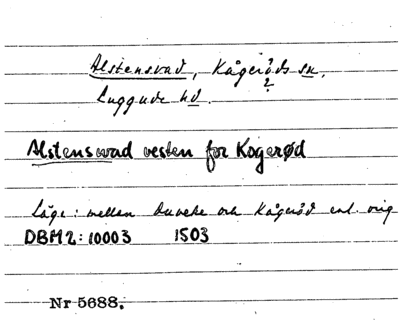 Alstensvad, Kågeröds sn.
?
Luggude hd.
Alstenswad vesten for Kogerød
Läge: mellan Duveke och Kågeröd enl. orig
DBM2: 10003 1503
Nr 5688.